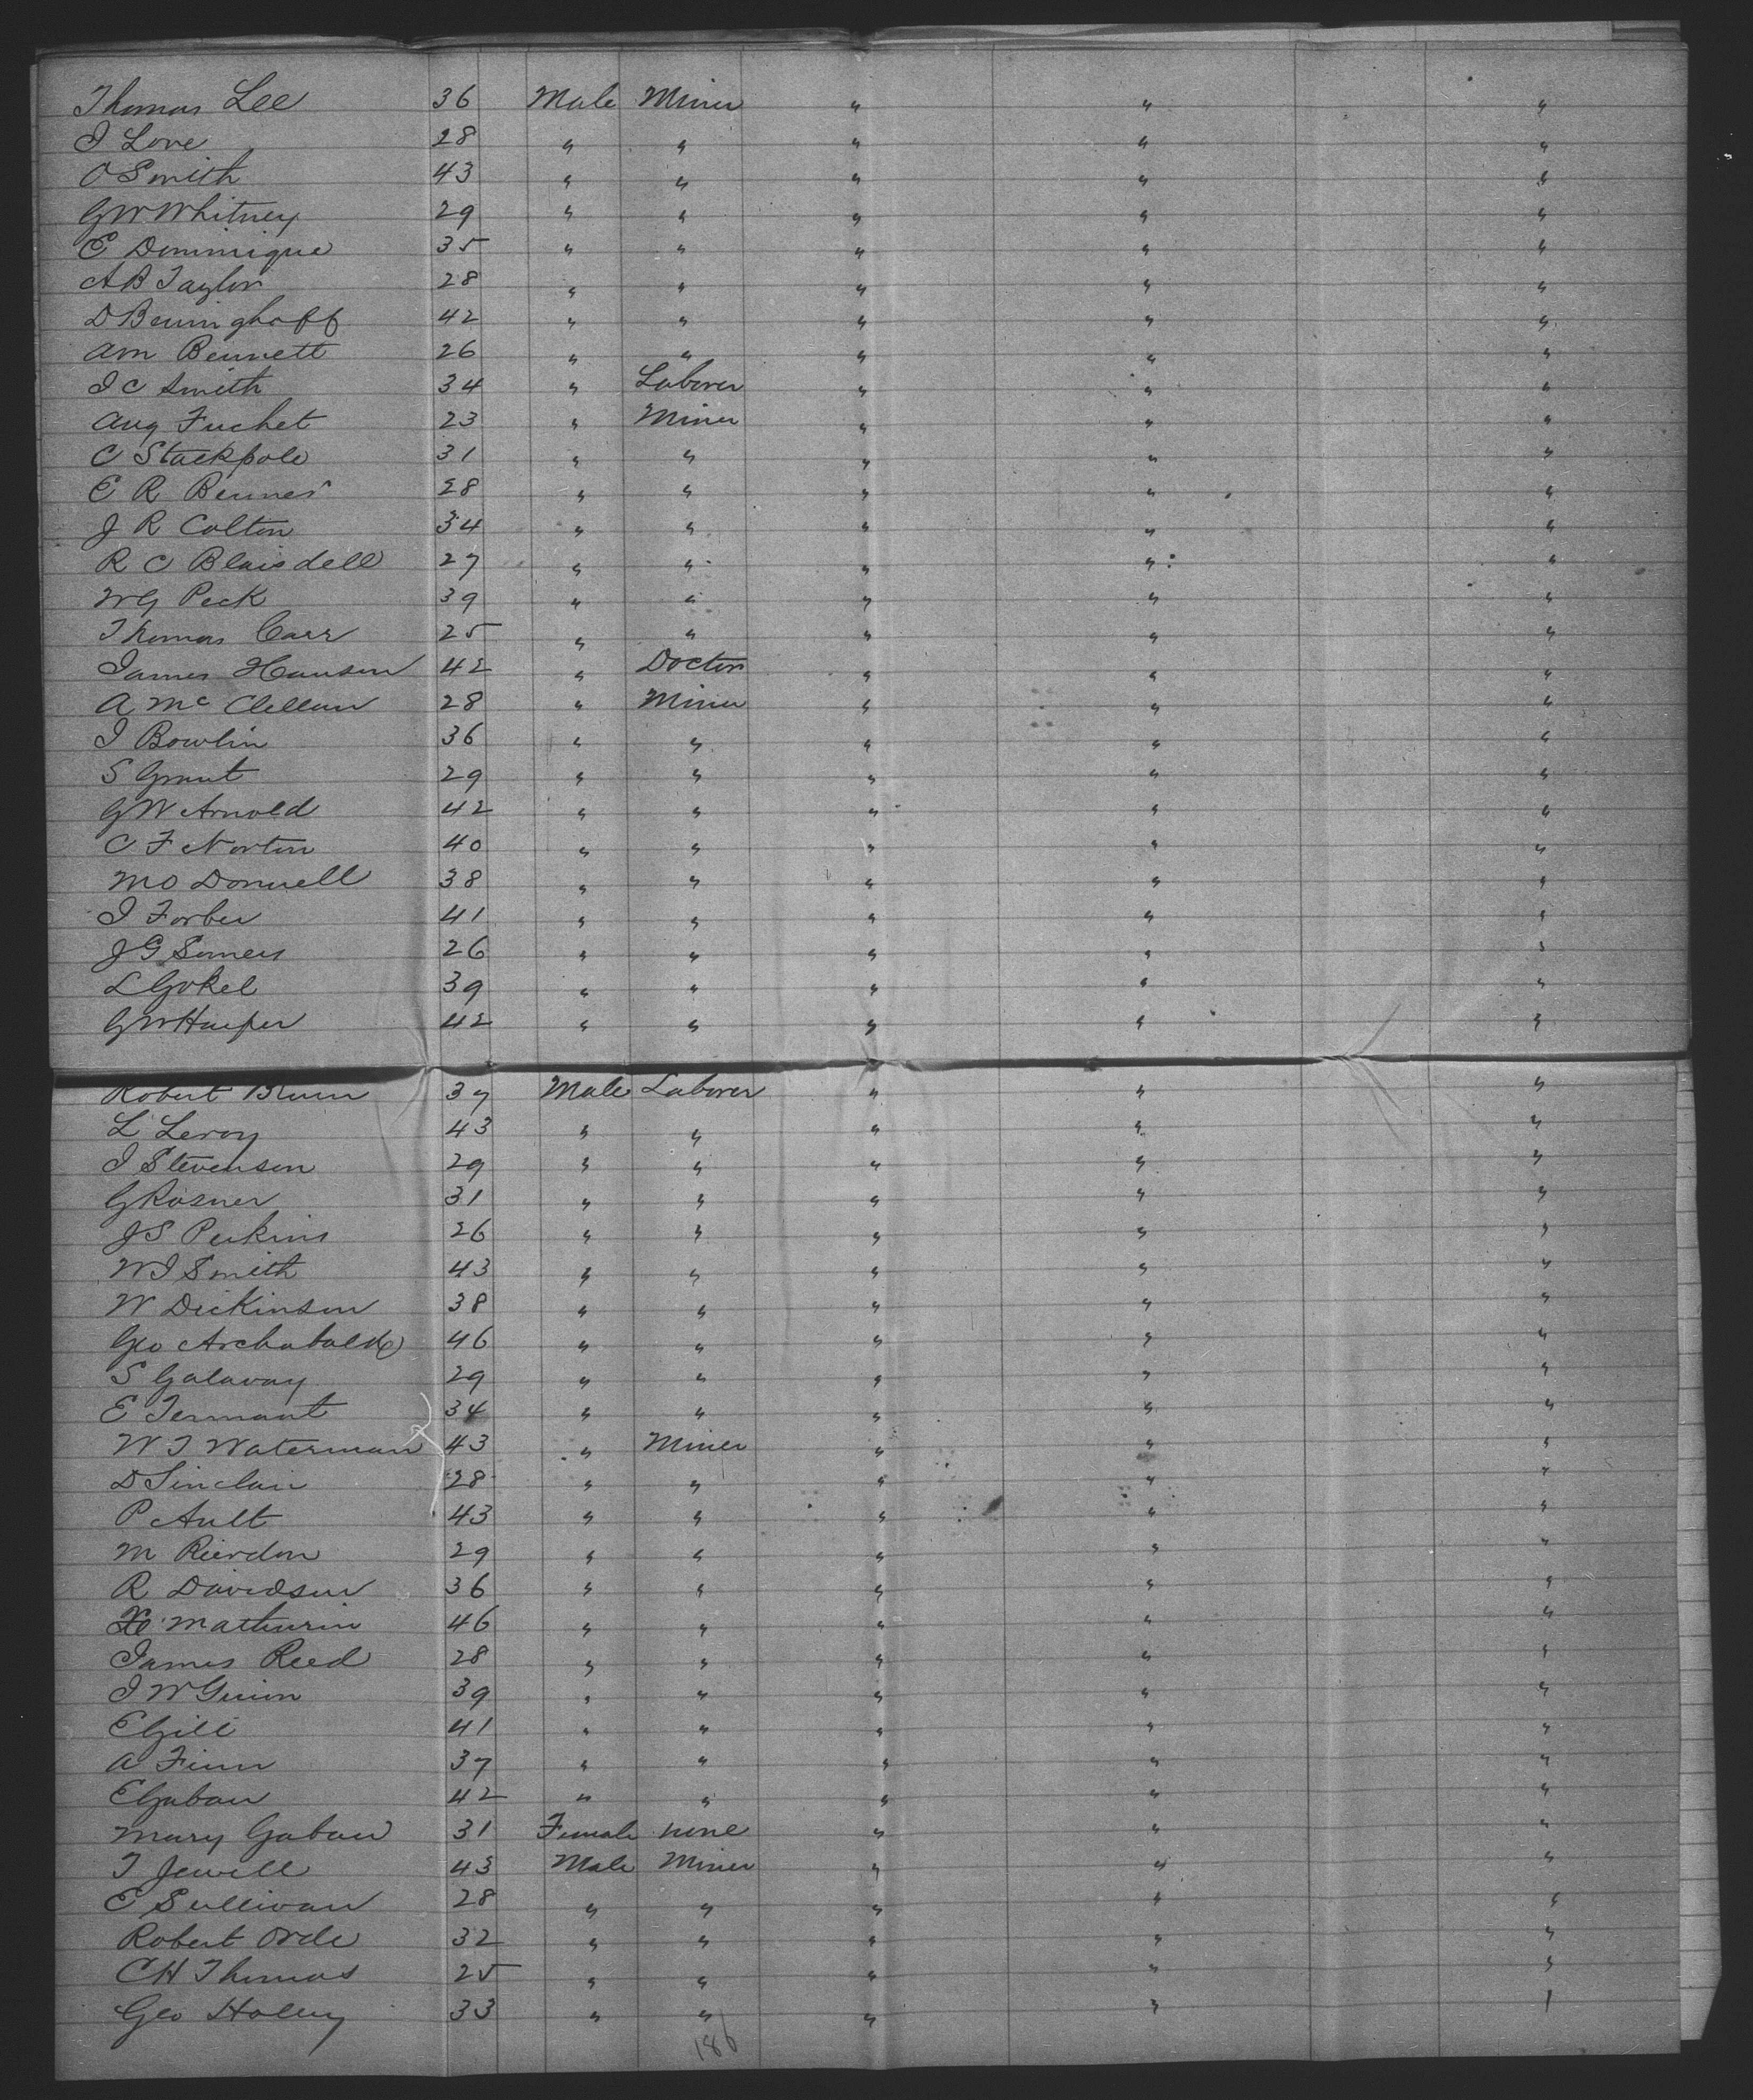 Thomas Lee 36 Male Miner " " "
I Love 28 " " " " "
O Smith 43 " " " " "
G W Whitney 29 " " " " "
E Dominique 35 " " " " "
A B Taylor 28 " " " " "
D Beninghoff 42 " " " " "
Am Bennett 26 " " " " "
I C Smith 34 " Laborer " " "
Aug Fuchet 23 " Miner " " "
C Stackpole 31 " " " " "
E R Benner 28 " " " " "
J R Colton 34 " " " " "
R C Blaisdell 27 " " " " "
W G Peck 39 " " " " "
Thomas Carr 25 " " " " "
James Hanson 42 " Doctor " " "
A McClellan 28 " Miner " " "
I Bowlin 36 " " " " "
S Grant 29 " " " " "
G W Arnold 42 " " " " "
C F Norton 40 " " " " "
M O Donnell 38 " " " " "
I Forbes 41 " " " " "
J G Somers 26 " " " " "
L Gokel 39 " " " " "
G W Harper 42 " " " " "
Robert 37 Male Laborer " " "
L Leroy 43 " " " " "
I Stevenson 29 " " " " "
G Rosner 31 " " " " "
J S Perkins 26 " " " " "
W I Smith 43 " " " " "
W Dickinson 38 " " " " "
Geo Archabald 46 " " " " "
S Galaway 29 " " " " "
E Termant 34 " " " " "
W T Waterman 43 " Miner " " "
D Sinclair 28 " " " " "
P Ault 43 " " " " "
M Rierdon 29 " " " " "
R Davidson 36 " " " " "
Mathurin 46 " " " " "
James Reed 28 " " " " "
I W 39 " " " " "
E Gill 41 " " " " "
A Finn 37 " " " " "
E Gaban 42 " " " " "
Mary Gaban 31 Female none " " "
T Jewell 43 Male Miner " " "
E Sullivan 28 " " " " "
Robert Orde 32 " " " " "
C H Thomas 25 " " " " "
Geo 33 " " " " "
186